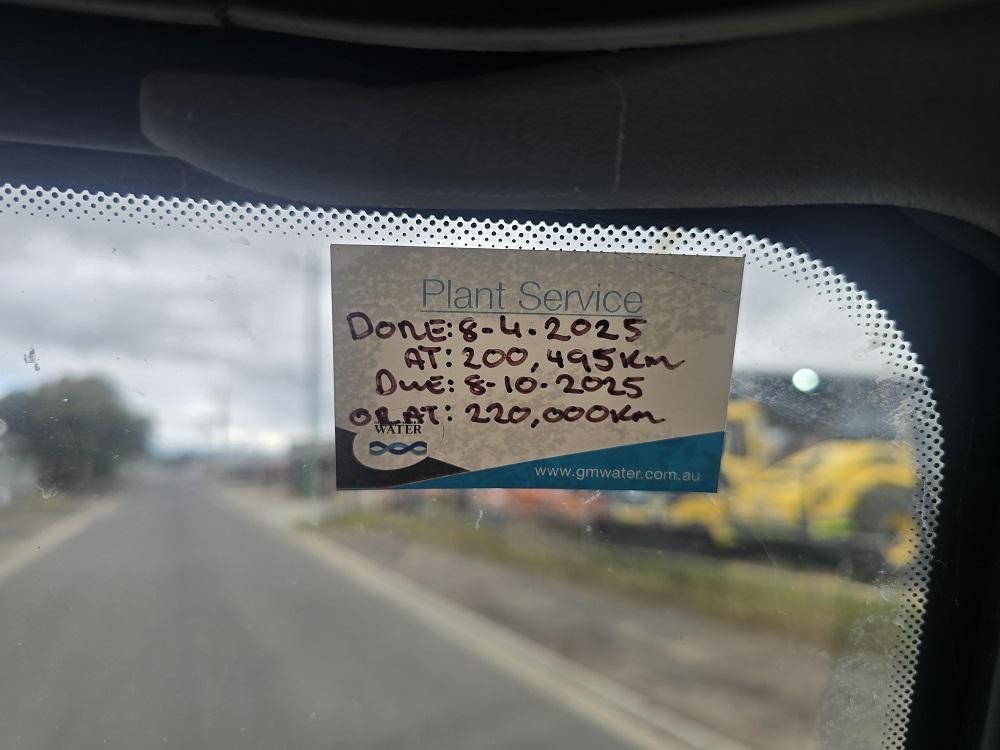 Plant Service
DONE: 8-4-2025
AT: 200,495Km
DUE: 8-10-2025
OR AT: 220,000Km
WATER
www.gmwater.com.au